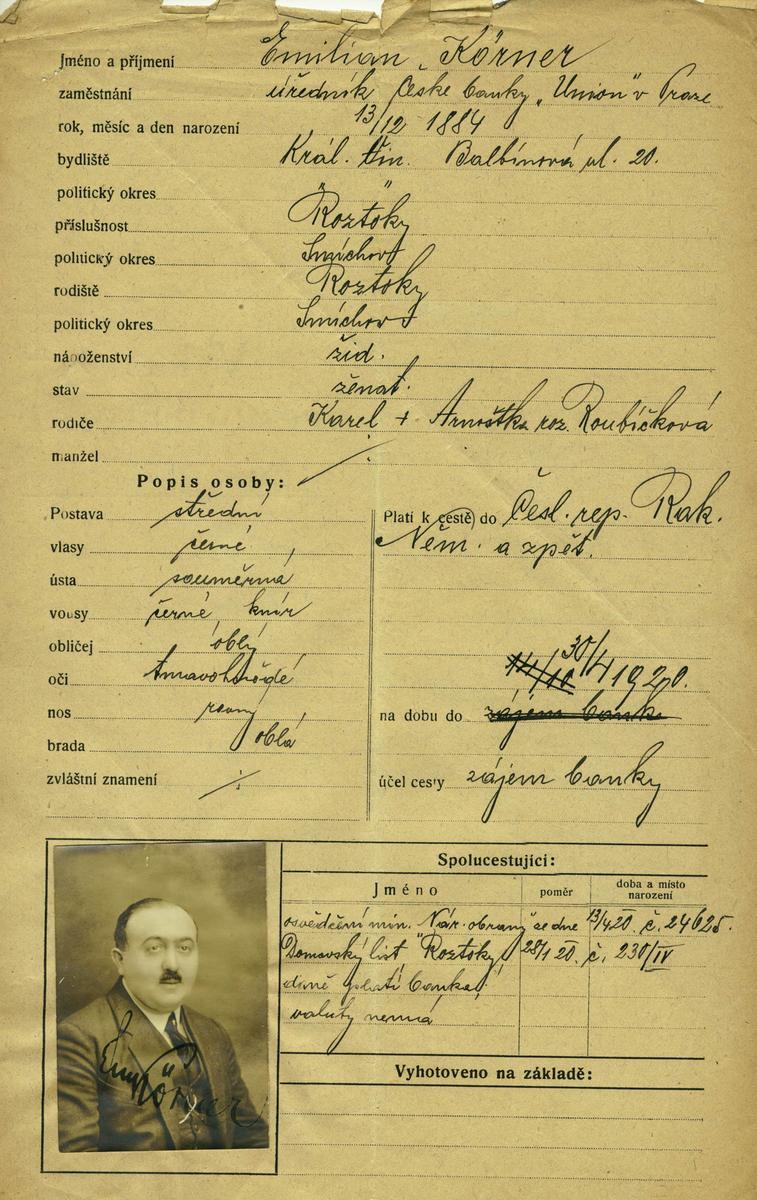 Jméno a příjmení Emilian Körner
zaměstnání úředník České banky „Union" v Praze
rok, měsíc a den narození 13/12 1884
bydliště Král. Vin. Balbínová ul. 20.
politický okres " "
příslušnost Roztoky
politický okres Smíchov
rodiště Roztoky
politický okres Smíchov
náboženství žid.
stav ženat.
rodiče Karel + Arnoštka roz. Roubíčková
manžel ./.
Popis osoby:
Postava střední
vlasy černé
ústa souměrná
vousy černé, knír
obličej oblý
oči tmavohnědé
nos rovný
brada oblá
zvláštní znamení ./.
Platí k cestě do Česl. rep. Rak.
Něm. a zpět.
14/10 30/4 1920.
na dobu do zájem bank
účel cesty zájem banky
Spolucestující:
Jméno poměr doba a místo narození
osvědčení min. Nár. obrany ze dne 13/4 20. č. 24625.
Domovský list Roztoky 28/1 20 č. 230/IV
platí banka,
valuty nemá
Vyhotoveno na základě:
Em. Körner